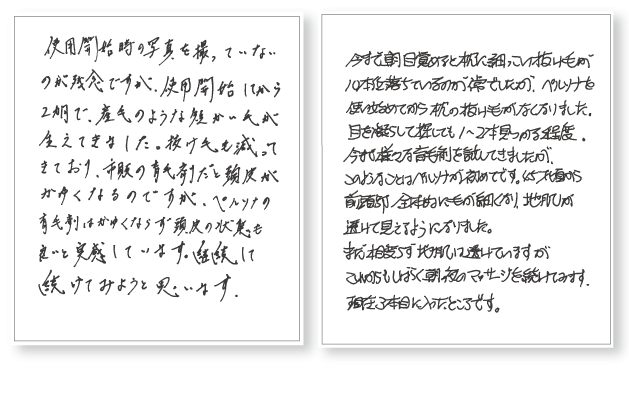 使用開始時の写真を撮っていない
のが残念ですが、使用開始してから
2ヶ月で、産毛のような短かい毛が
生えてきました。抜け毛も減って
きており、市販の育毛剤だと頭皮が
かゆくなるのですが、ペルソナの
育毛剤はかゆくならず頭皮の状態も
良いと実感しています。継続して
続けてみようと思います。
今まで朝目覚めると枕に細っこい抜け毛が
10本は落ちているのが常でしたが、ペルソナを
使い始めてから枕の抜け毛がなくなりました。
目を凝らして探しても1〜2本見つかる程度。
今まで様々な育毛剤を試してきましたが、
このようなことはペルソナが初めてです。
前頭部、全体的に毛が細くなり、地肌が
透けて見えるようになりました。
まだ相変らず地肌は透けていますが
これからもしばらく朝夜のマッサージを続けてみます。
現在3本目に入ったところです。